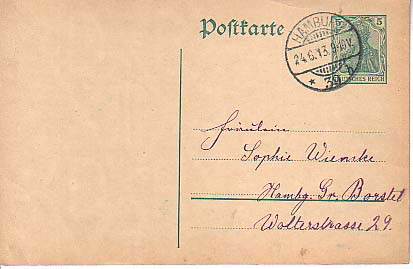 Postkarte
HAMBURG
5
24.6.13.
39
DEUTSCHES REICH
Fräulein
Sophie Wiencke
Hambg. Gr. Borstel
Wolterstrasse 29.